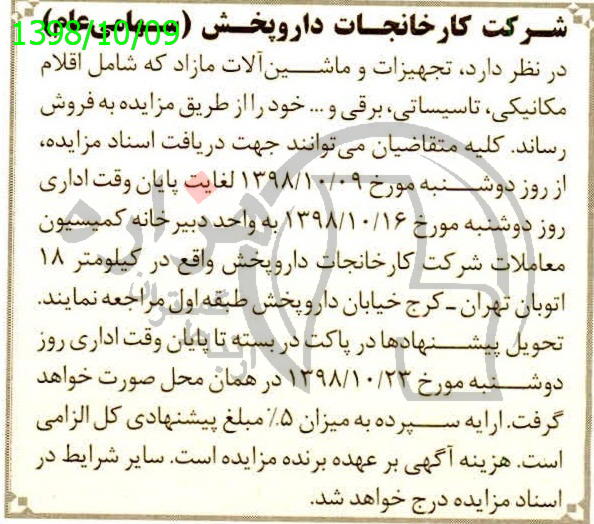 شرکت کارخانجات داروپخش (سهامی‌عام)
1398/10/09
در نظر دارد، تجهیزات و ماشین‌آلات مازاد که شامل اقلام
مکانیکی، تاسیساتی، برقی و ... خود را از طریق مزایده به فروش
رساند. کلیه متقاضیان می‌توانند جهت دریافت اسناد مزایده،
از روز دوشنبه مورخ ۱۳۹۸/۱۰/۰۹ لغایت پایان وقت اداری
روز دوشنبه مورخ ۱۳۹۸/۱۰/۱۶ به واحد دبیرخانه کمیسیون
معاملات شرکت کارخانجات داروپخش واقع در کیلومتر ۱۸
اتوبان تهران ـ کرج خیابان داروپخش طبقه اول مراجعه نمایند.
تحویل پیشنهادها در پاکت در بسته تا پایان وقت اداری روز
دوشنبه مورخ ۱۳۹۸/۱۰/۲۳ در همان محل صورت خواهد
گرفت. ارایه سپرده به میزان ۵٪ مبلغ پیشنهادی کل الزامی
است. هزینه آگهی بر عهده برنده مزایده است. سایر شرایط در
اسناد مزایده درج خواهد شد.